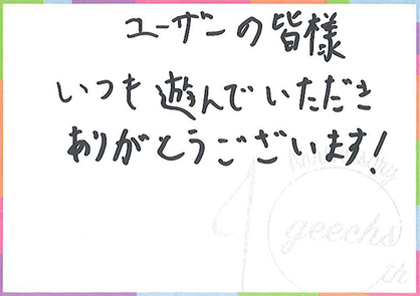 ユーザーの皆様
いつも遊んでいただき
ありがとうございます!
Anniversary
10
geechs
th